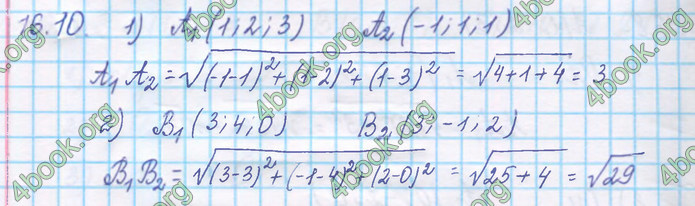 16.10. 1) A₁(1; 2; 3) A₂(-1; 1; 1)
A₁A₂ = √((-1-1)² + (1-2)² + (1-3)²) = √(4+1+4) = 3
2) B₁(3; 4; 0) B₂(3; -1; 2)
B₁B₂ = √((3-3)² + (-1-4)² + (2-0)²) = √(25+4) = √29
4book.org 4book.org 4book.org 4book.org 4book.org